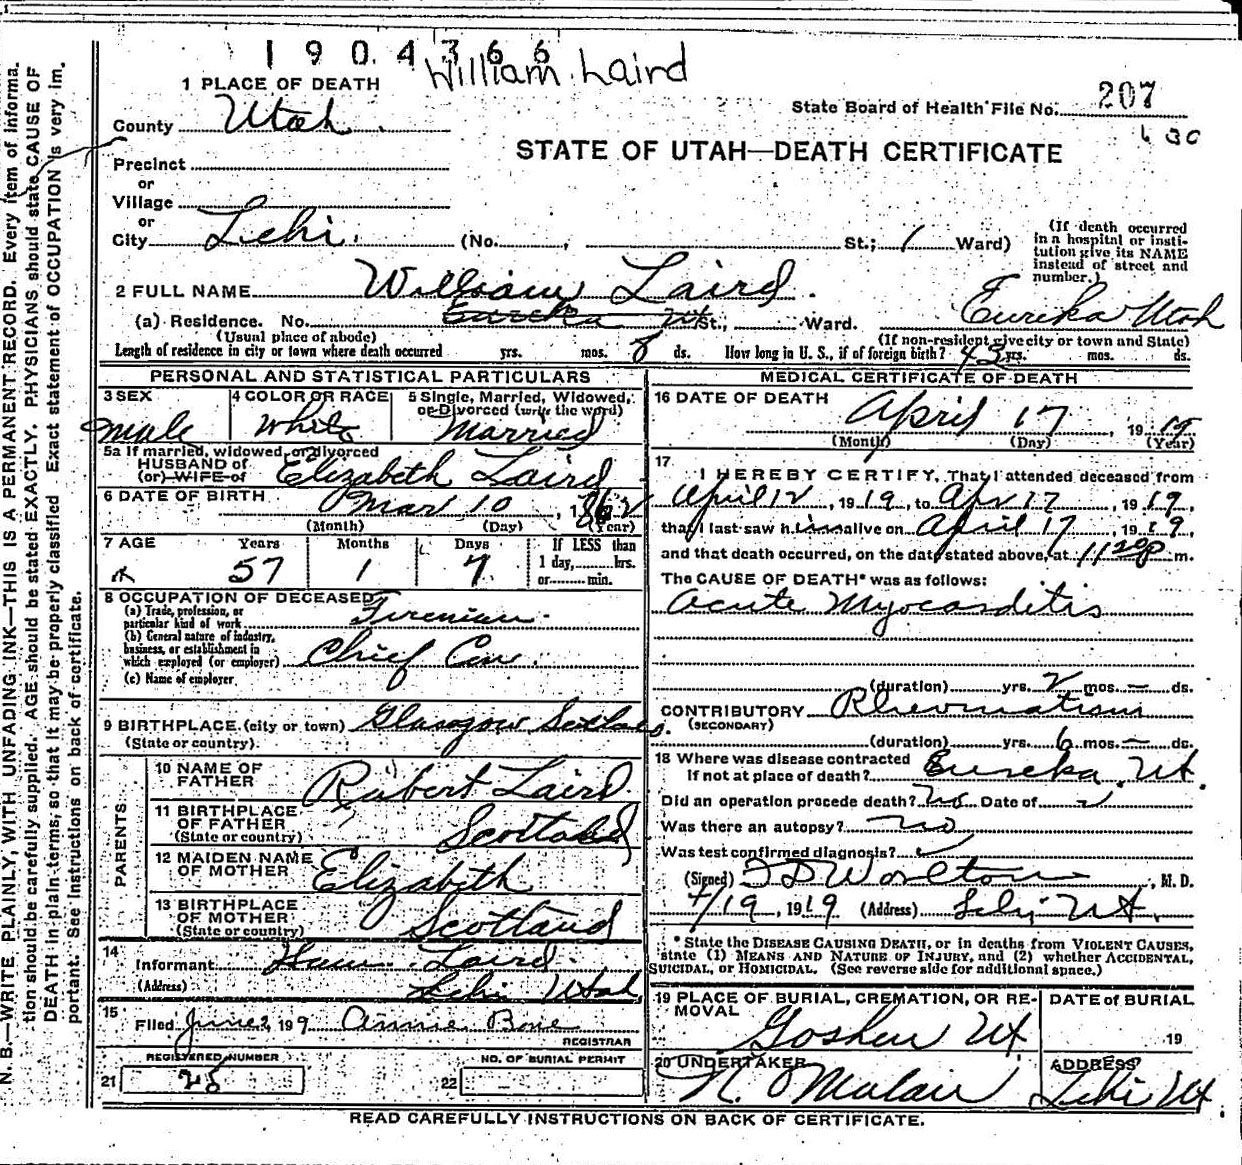 1904366
William Laird
1 PLACE OF DEATH
State Board of Health File No. 207
County Utah
630
STATE OF UTAH—DEATH CERTIFICATE
Precinct
or
Village
or
City Lehi. (No. , St.; 1 Ward)
(If death occurred in a hospital or insti-
tution give its NAME
instead of street and
number.)
2 FULL NAME William Laird.
(a) Residence. No. Eureka Ut St., Ward. Eureka Utah
(Usual place of abode) (If non-resident give city or town and State)
Length of residence in city or town where death occurred yrs. mos. 8 ds. How long in U. S., if of foreign birth? 43 yrs. mos. ds.
PERSONAL AND STATISTICAL PARTICULARS
3 SEX
Male
4 COLOR OR RACE
White
5 Single, Married, Widowed,
or Divorced (write the word)
Married
5a If married, widowed, or divorced
HUSBAND of
(or) WIFE of Elizabeth Laird
6 DATE OF BIRTH Mar 10, 1862
(Month) (Day) (Year)
7 AGE Years Months Days If LESS than
57 1 7 1 day, hrs.
or min.
8 OCCUPATION OF DECEASED
(a) Trade, profession, or
particular kind of work Fireman
(b) General nature of industry,
business, or establishment in
which employed (or employer) Chief Con.
(c) Name of employer
9 BIRTHPLACE (city or town) Glasgow Scotland.
(State or country)
PARENTS
10 NAME OF
FATHER Robert Laird.
11 BIRTHPLACE
OF FATHER
(State or country) Scotland
12 MAIDEN NAME
OF MOTHER Elizabeth
13 BIRTHPLACE
OF MOTHER
(State or country) Scotland
14
Informant Laird.
(Address) Lehi Utah
15
Filed June 2, 19 9 Annie Bone
REGISTRAR
REGISTERED NUMBER NO. OF BURIAL PERMIT
21 28 22 —
MEDICAL CERTIFICATE OF DEATH
16 DATE OF DEATH
April 17, 19 19
(Month) (Day) (Year)
17
I HEREBY CERTIFY, That I attended deceased from
April 12, 1919, to Apr 17, 1919,
that I last saw him alive on April 17, 1919
and that death occurred, on the date stated above, at 11 20p m.
The CAUSE OF DEATH* was as follows:
Acute Myocarditis
(duration) yrs. 2 mos. — ds.
CONTRIBUTORY Rheumatism
(SECONDARY)
(duration) yrs. 6 mos. — ds.
18 Where was disease contracted
If not at place of death? Eureka, Ut
Did an operation precede death? no Date of
Was there an autopsy? no
Was test confirmed diagnosis?
(Signed) F D Worlton, M. D.
4/19, 1919 (Address) Lehi Ut.
* State the DISEASE CAUSING DEATH, or in deaths from VIOLENT CAUSES,
state (1) MEANS AND NATURE OF INJURY, and (2) whether ACCIDENTAL,
SUICIDAL, or HOMICIDAL. (See reverse side for additional space.)
19 PLACE OF BURIAL, CREMATION, OR RE-
MOVAL
Goshen Ut
DATE of BURIAL
19
20 UNDERTAKER
N. O Malan
ADDRESS
Lehi Ut.
READ CAREFULLY INSTRUCTIONS ON BACK OF CERTIFICATE.
N. B.—WRITE PLAINLY, WITH UNFADING INK—THIS IS A PERMANENT RECORD. Every item of informa-
tion should be carefully supplied. AGE should be stated EXACTLY. PHYSICIANS should state CAUSE OF
DEATH in plain terms, so that it may be properly classified. Exact statement of OCCUPATION is very im-
portant. See instructions on back of certificate.